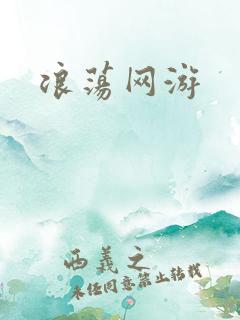 浪荡网游
西義之
未经同意禁止转载